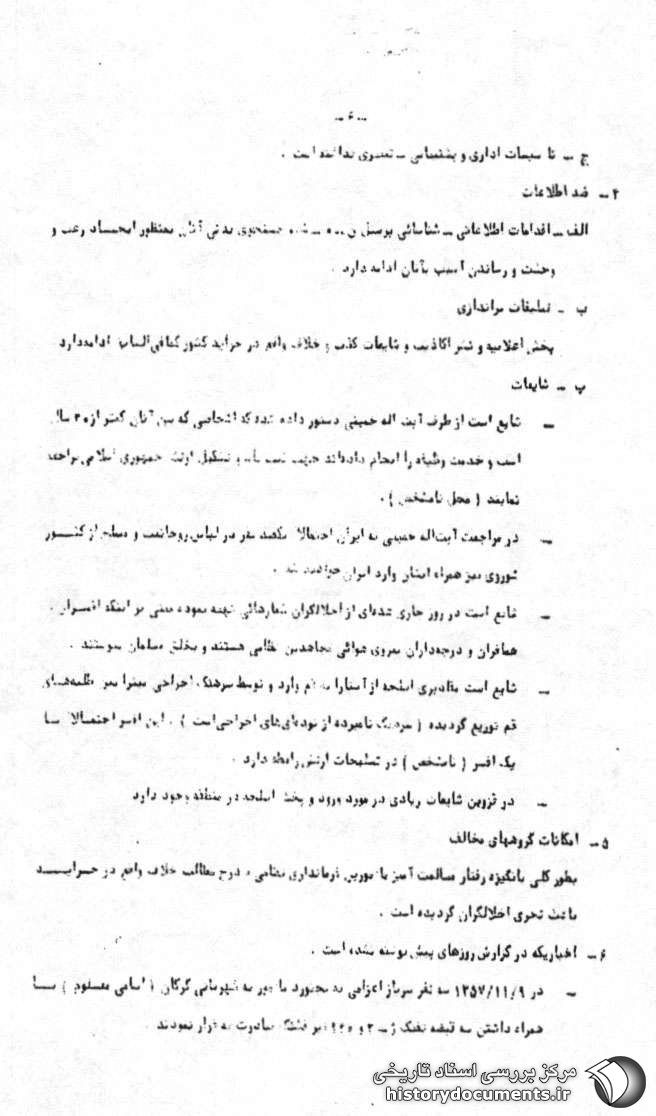 ـ ۶ ـ
ج ـ تا سیسات اداری و پشتیبانی ـ تغییری نداشته است .
۴ ـ ضد اطلاعات
الف ـ اقدامات اطلاعاتی ـ شناسائی پرسنل و جستجوی بدنی آنان بمنظور ایجاد رعب و
وحشت و رساندن آسیب بآنان ادامه دارد .
ب ـ تبلیغات براندازی
پخش اعلامیه و نشر اکاذیب و شایعات کذب و خلاف واقع در جراید کشور کمافی‌السابق ادامه‌دارد
پ ـ شایعات
ـ شایع است از طرف آیت اله خمینی دستور داده شده که اشخاصی که سن آنان کمتر از ۳۰ سال
است و خدمت وظیفه را انجام داده‌اند جهت ثبت نام و تشکیل ارتش جمهوری اسلامی مراجعه
نمایند ( محل نامشخص ) .
ـ در مراجعت آیت‌اله خمینی به ایران احتمالا نفر در لباس روحانیت و مسلح از کشور
شوروی نیز همراه ایشان وارد ایران خواهند شد .
ـ شایع است در روز جاری عده‌ای از اخلالگران شعارهائی تهیه نموده مبنی بر اینکه افسران ،
همافران و درجه‌داران نیروی هوائی مجاهدین نظامی هستند و بخلق مسلمان پیوستند .
ـ شایع است مقادیری اسلحه از آستارا به قم وارد و توسط سرهنگ اخراجی بین طلبه‌های
قم توزیع گردیده ( سرهنگ نامبرده از توده‌ای‌های اخراجی است ) . این افسر احتمالا با
یک افسر ( نامشخص ) در تسلیحات ارتش رابطه دارد .
ـ در قزوین شایعات زیادی در مورد ورود و پخش اسلحه در منطقه وجود دارد
۵ ـ امکانات گروههای مخالف
بطور کلی بانگیزه رفتار مسالمت آمیز مامورین فرمانداری نظامی و درج مطالب خلاف واقع در جراید
باعث تجری اخلالگران گردیده است .
۶ ـ اخباریکه در گزارش روزهای پیش نوشته نشده است .
ـ در ۱۳۵۷/۱۱/۹ سه نفر سرباز اعزامی به بجنورد مامور به شهربانی گرگان ( اسامی معلوم ) با
همراه داشتن سه قبضه تفنگ ژ ـ ۳ و تیر فشنگ مبادرت به فرار نمودند .
مرکز بررسی اسناد تاریخی
historydocuments.ir